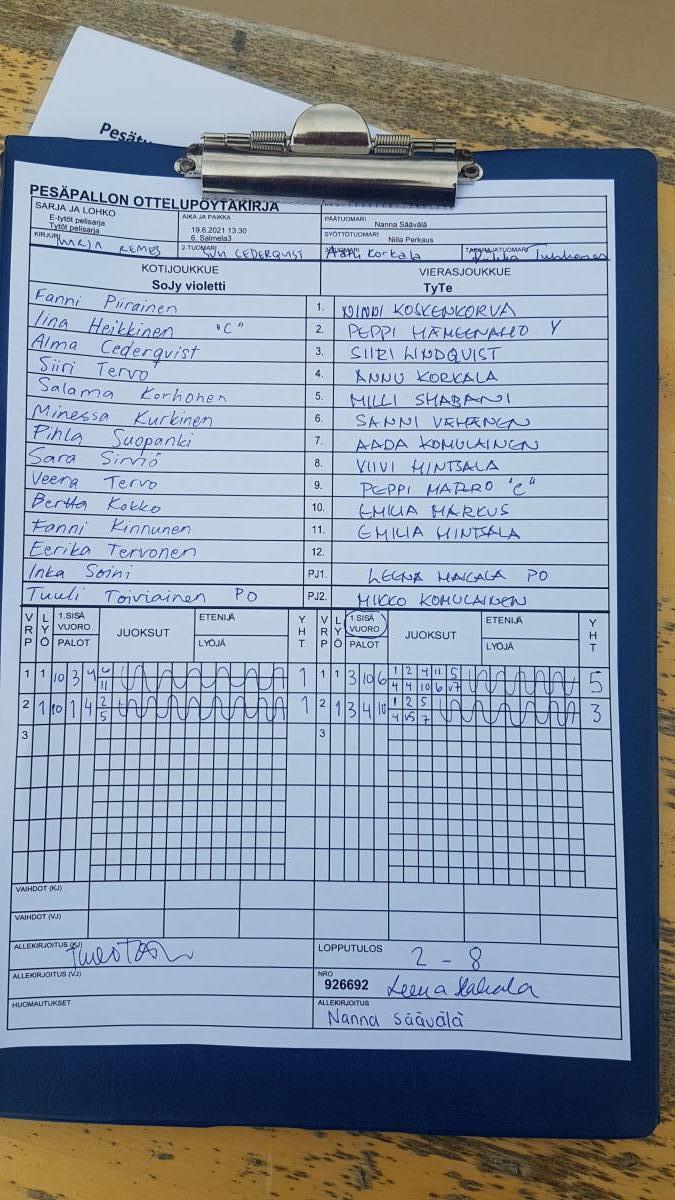 PESÄPALLON OTTELUPÖYTÄKIRJA
SARJA JA LOHKO
E-tytöt pelisarja
Tytöt pelisarja
AIKA JA PAIKKA
19.6.2021 13:30
6. Salmela3
PÄÄTUOMARI
Nanna Säävälä
SYÖTTÖTUOMARI
Niila Perkaus
KIRJURI
REMES
2-TUOMARI
CEDERQVIST
Korkala
TAKARAJATUOMARI
KOTIJOUKKUE
SoJy violetti
VIERASJOUKKUE
TyTe
Fanni Piirainen 1.
KOSKENKORVA
Iina Heikkinen "C" 2. PEPPI HÄMEENAHO Y
Alma Cederqvist 3. SIIRI LINDQVIST
Siiri Tervo 4. ANNU KORKALA
Salama Korhonen 5. MILLI SHABANI
Minessa Kurkinen 6. SANNI VEHANEN
Pihla Suopanki 7. AADA KOMULAINEN
Sara Sirviö 8. VIIVI HINTSALA
Veera Tervo 9. PEPPI MARRO "C"
Bertta Kokko 10. EMILIA MARKUS
Fanni Kinnunen 11. EMILIA HINTSALA
Eerika Tervonen 12.
Inka Soini PJ1. LEENA HAKALA PO
Tuuli Toiviainen PO PJ2. MIKKO KOMULAINEN
VRP LYÖ 1.SISÄ VUORO PALOT JUOKSUT ETENIJÄ LYÖJÄ YHT VRP LYÖ 1.SISÄ VUORO PALOT JUOKSUT ETENIJÄ LYÖJÄ YHT
1 1 10 3 4 6 1 1 1 3 10 6 1 2 4 11 5 5
11 4 4 10 6 v7
2 1 10 1 4 2 1 2 1 3 4 10 1 2 5 3
5 4 v5 7
3 3
VAIHDOT (KJ)
VAIHDOT (VJ)
ALLEKIRJOITUS (KJ)
LOPPUTULOS 2 - 8
ALLEKIRJOITUS (VJ)
NRO
926692 Leena Hakala
HUOMAUTUKSET
ALLEKIRJOITUS
Nanna Säävälä